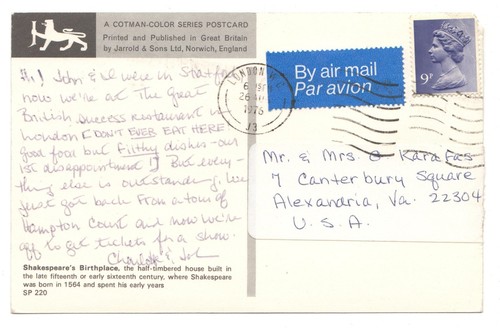 A COTMAN-COLOR SERIES POSTCARD
Printed and Published in Great Britain
by Jarrold & Sons Ltd, Norwich, England
Hi! John & I were in Stratford
now we're at The Great
British Success restaurant in
London [DON'T EVER EAT HERE
good food but filthy dishes - our
1st disappointment!] But every-
thing else is outstanding. We
just got back from a tour of
Hampton Court and now we're
off to get tickets for a show.
Charlotte & John
Shakespeare's Birthplace, the half-timbered house built in
the late fifteenth or early sixteenth century, where Shakespeare
was born in 1564 and spent his early years
SP 220
LONDON W.
26
1976
J3
By air mail
Par avion
9P
Mr. & Mrs. G Karafas
7 Canterbury Square
Alexandria, Va. 22304
U.S.A.